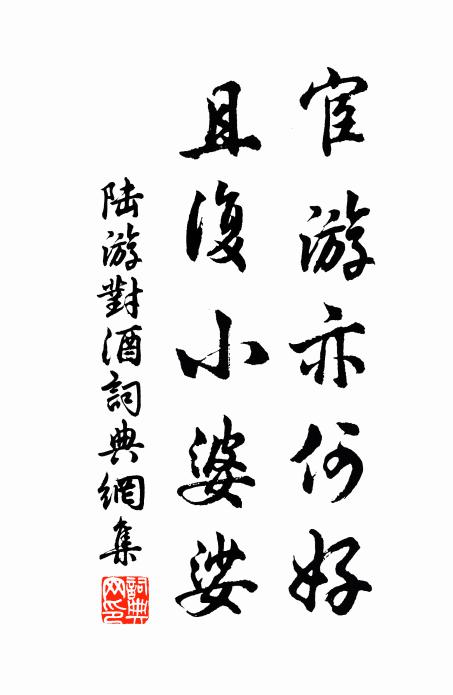 宦游亦何好
且復小婆娑
陆游對酒詞典網集
詞典网印